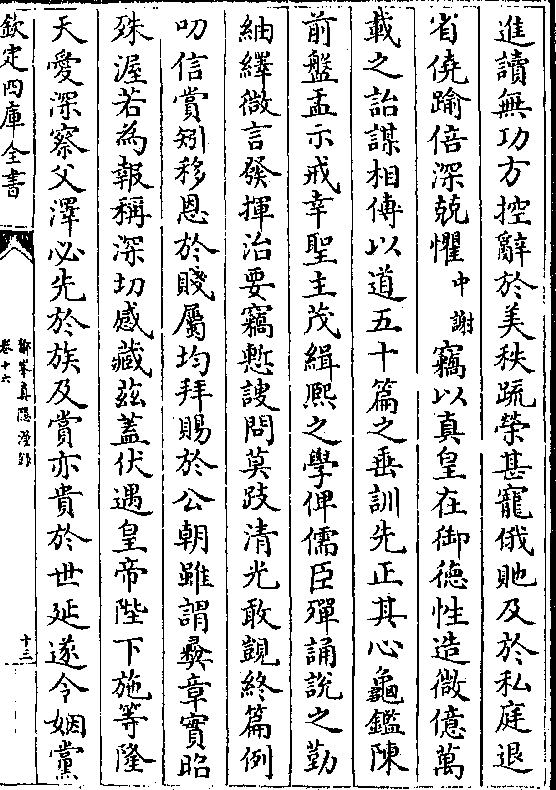 進讀無功方控辭於美秩疏榮甚寵俄貤及於私庭退
省僥踰倍深兢懼中謝竊以真皇在御德性造微億萬
載之詒謀相傳以道五十篇之垂訓先正其心龜鑑陳
前盤盂示戒幸聖主茂緝熙之學俾儒臣殫誦說之勤
紬繹微言發揮治要竊慙謏問莫跂清光敢覬終篇例
叨信賞矧移恩於賤屬均拜賜於公朝雖謂彞章實昭
殊渥若為報稱深切感藏茲蓋伏遇皇帝陛下施等隆
天愛深察父澤必先於族及賞亦貴於世延遂令姻黨
欽定四庫全書
鄮峯真隱漫錄
卷十六
十三